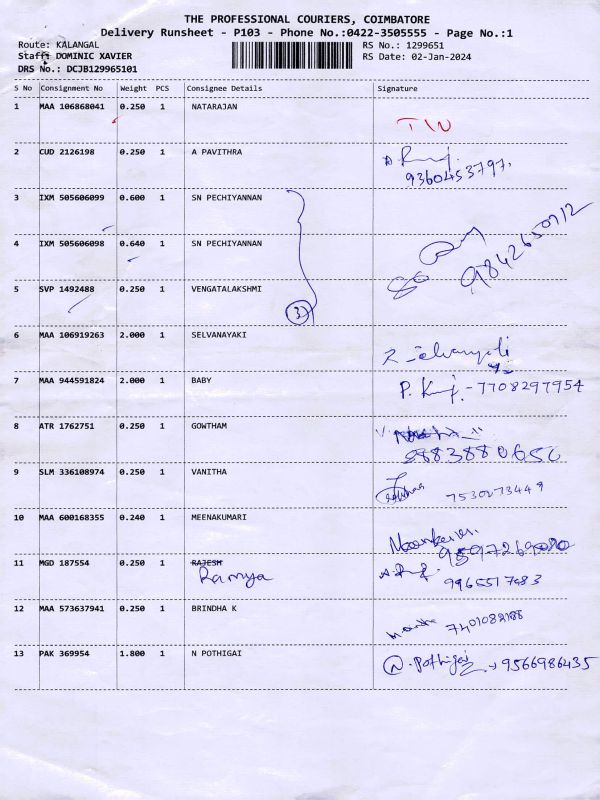 THE PROFESSIONAL COURIERS, COIMBATORE
Delivery Runsheet - P103 - Phone No.:0422-3505555 - Page No.:1
Route: KALANGAL RS No.: 1299651
Staff: DOMINIC XAVIER RS Date: 02-Jan-2024
DRS No.: DCJB129965101
S No Consignment No Weight PCS Consignee Details Signature
1 MAA 106868041 0.250 1 NATARAJAN
2 CUD 2126198 0.250 1 A PAVITHRA
9360453797.
3 IXM 505606099 0.600 1 SN PECHIYANNAN
4 IXM 505606098 0.640 1 SN PECHIYANNAN
9842650712
5 SVP 1492488 0.250 1 VENGATALAKSHMI
3
6 MAA 106919263 2.000 1 SELVANAYAKI
7 MAA 944591824 2.000 1 BABY
- 7708297954
8 ATR 1762751 0.250 1 GOWTHAM
9 SLM 336108974 0.250 1 VANITHA
10 MAA 600168355 0.240 1 MEENAKUMARI
11 MGD 187554 0.250 1 RAJESH
Ramya
12 MAA 573637941 0.250 1 BRINDHA K
7401082188
13 PAK 369954 1.800 1 N POTHIGAI N. Pothigai → 9566986435